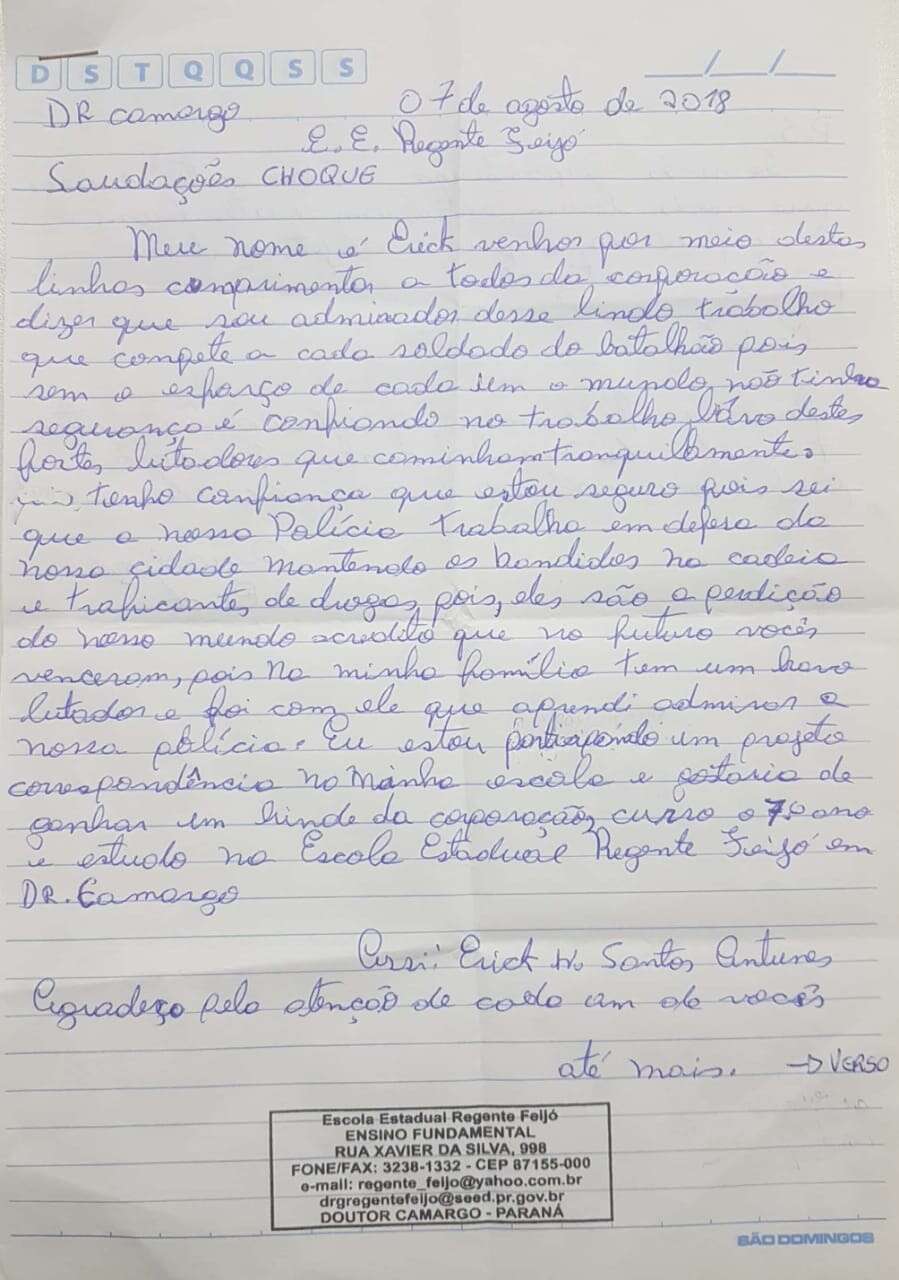 D S T Q Q S S
__/__/__
DR camargo 07 de agosto de 2018
E. E. Regente Feijó
Saudações CHOQUE
Meu nome é Erick venhor por meio destas
linhas comprimentar a todos da corporação e
dizer que sou admirador desse lindo trabalho
que compete a cada soldado do batalhão pois
sem o esforço de cada um o mundo não tinha
segurança é confiando no trabalho destes
fortes lutadores que caminham tranquilamente.
tenho confiança que estou seguro pois sei
que a nossa Polícia trabalha em defesa da
nossa cidade mantendo os bandidos na cadeia
e traficantes de drogas, pois, eles são a perdição
do nosso mundo acredito que no futuro vocês
venceram, pois na minha família tem um bravo
lutador e foi com ele que aprendi admirar a
nossa polícia. Eu estou um projeto
correspondência na Minha escola e gotaria de
ganhar um brinde da corporação, curso o 7º ano
e estudo na Escola Estadual Regente Feijó em
DR. Camargo
Assi: Erick W. Santos Antunes
Agradeço pela atenção de cada um de vocês
até mais. → VERSO
Escola Estadual Regente Feijó
ENSINO FUNDAMENTAL
RUA XAVIER DA SILVA, 998
FONE/FAX: 3238-1332 - CEP 87155-000
e-mail: regente_feijo@yahoo.com.br
drgregentefeijo@seed.pr.gov.br
DOUTOR CAMARGO - PARANÁ
SÃO DOMINGOS